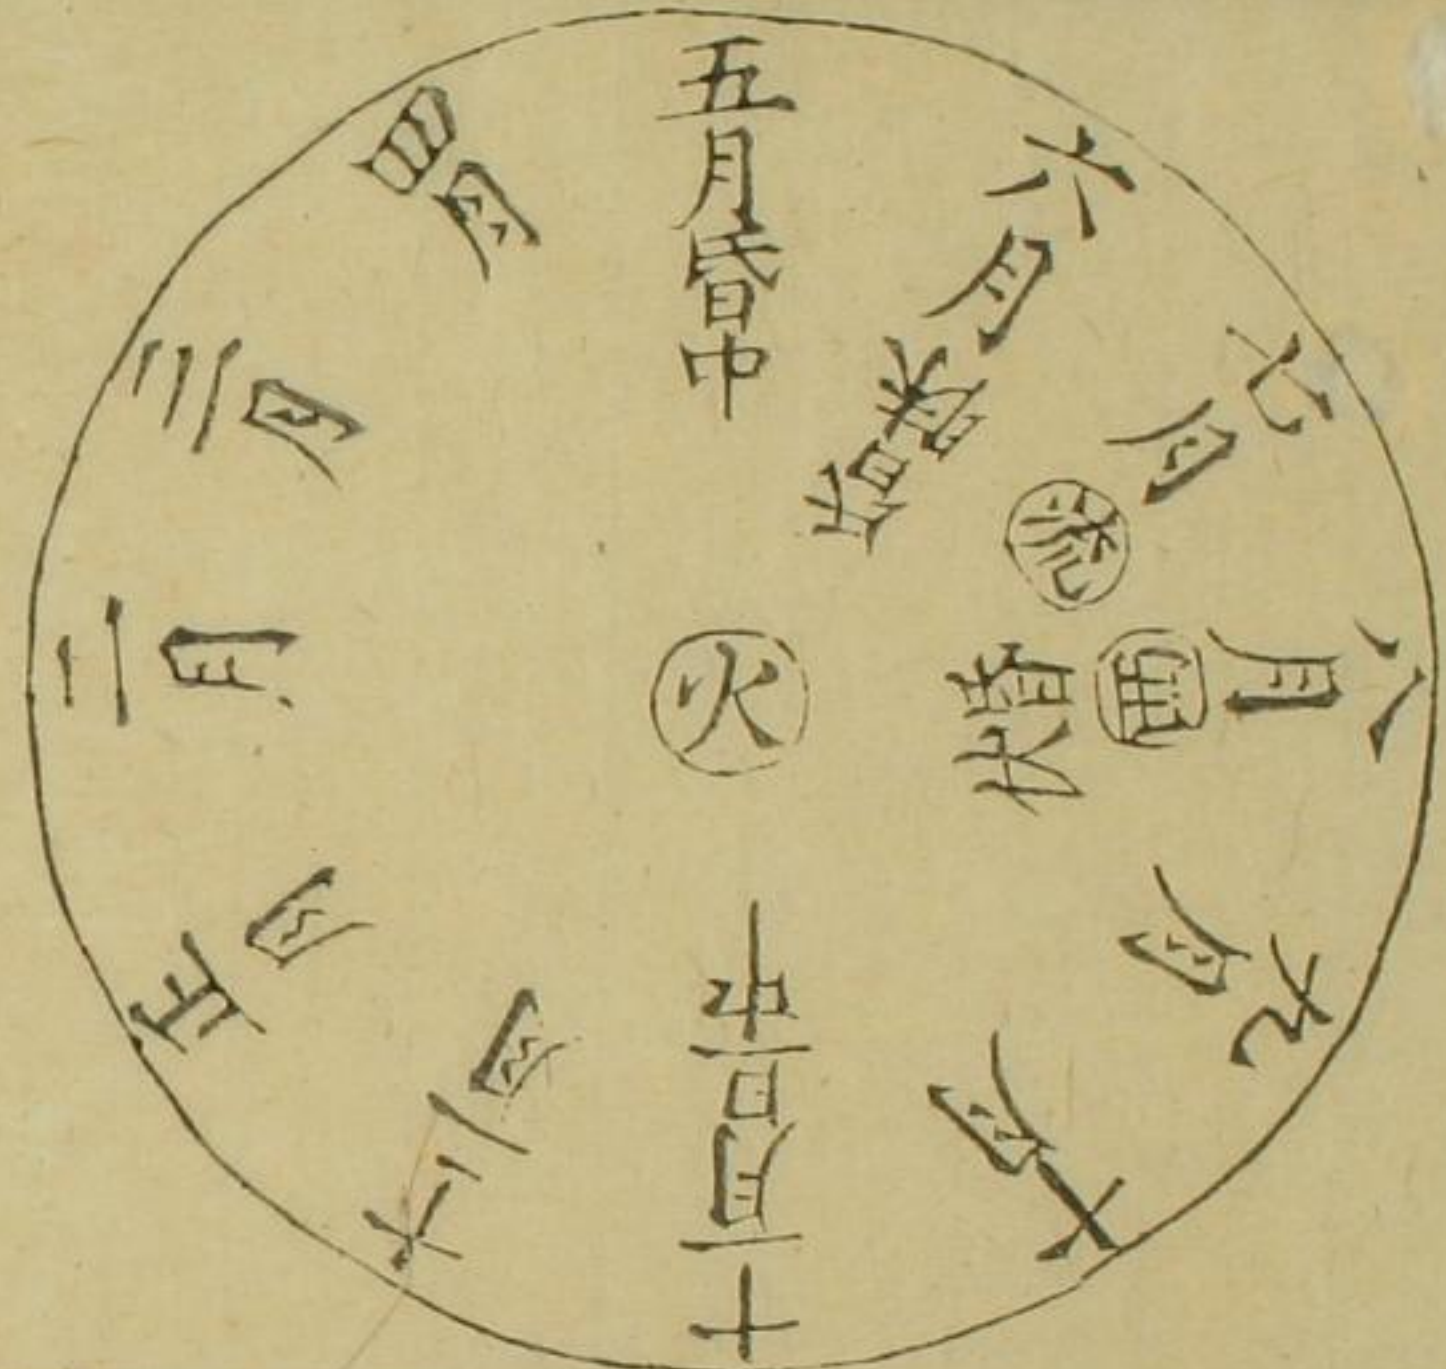 五月昏中
六月
七月
流
八月
西
昏伏
九月
十月
十一月旦中
十二月
正月
二月
三月
四月
火